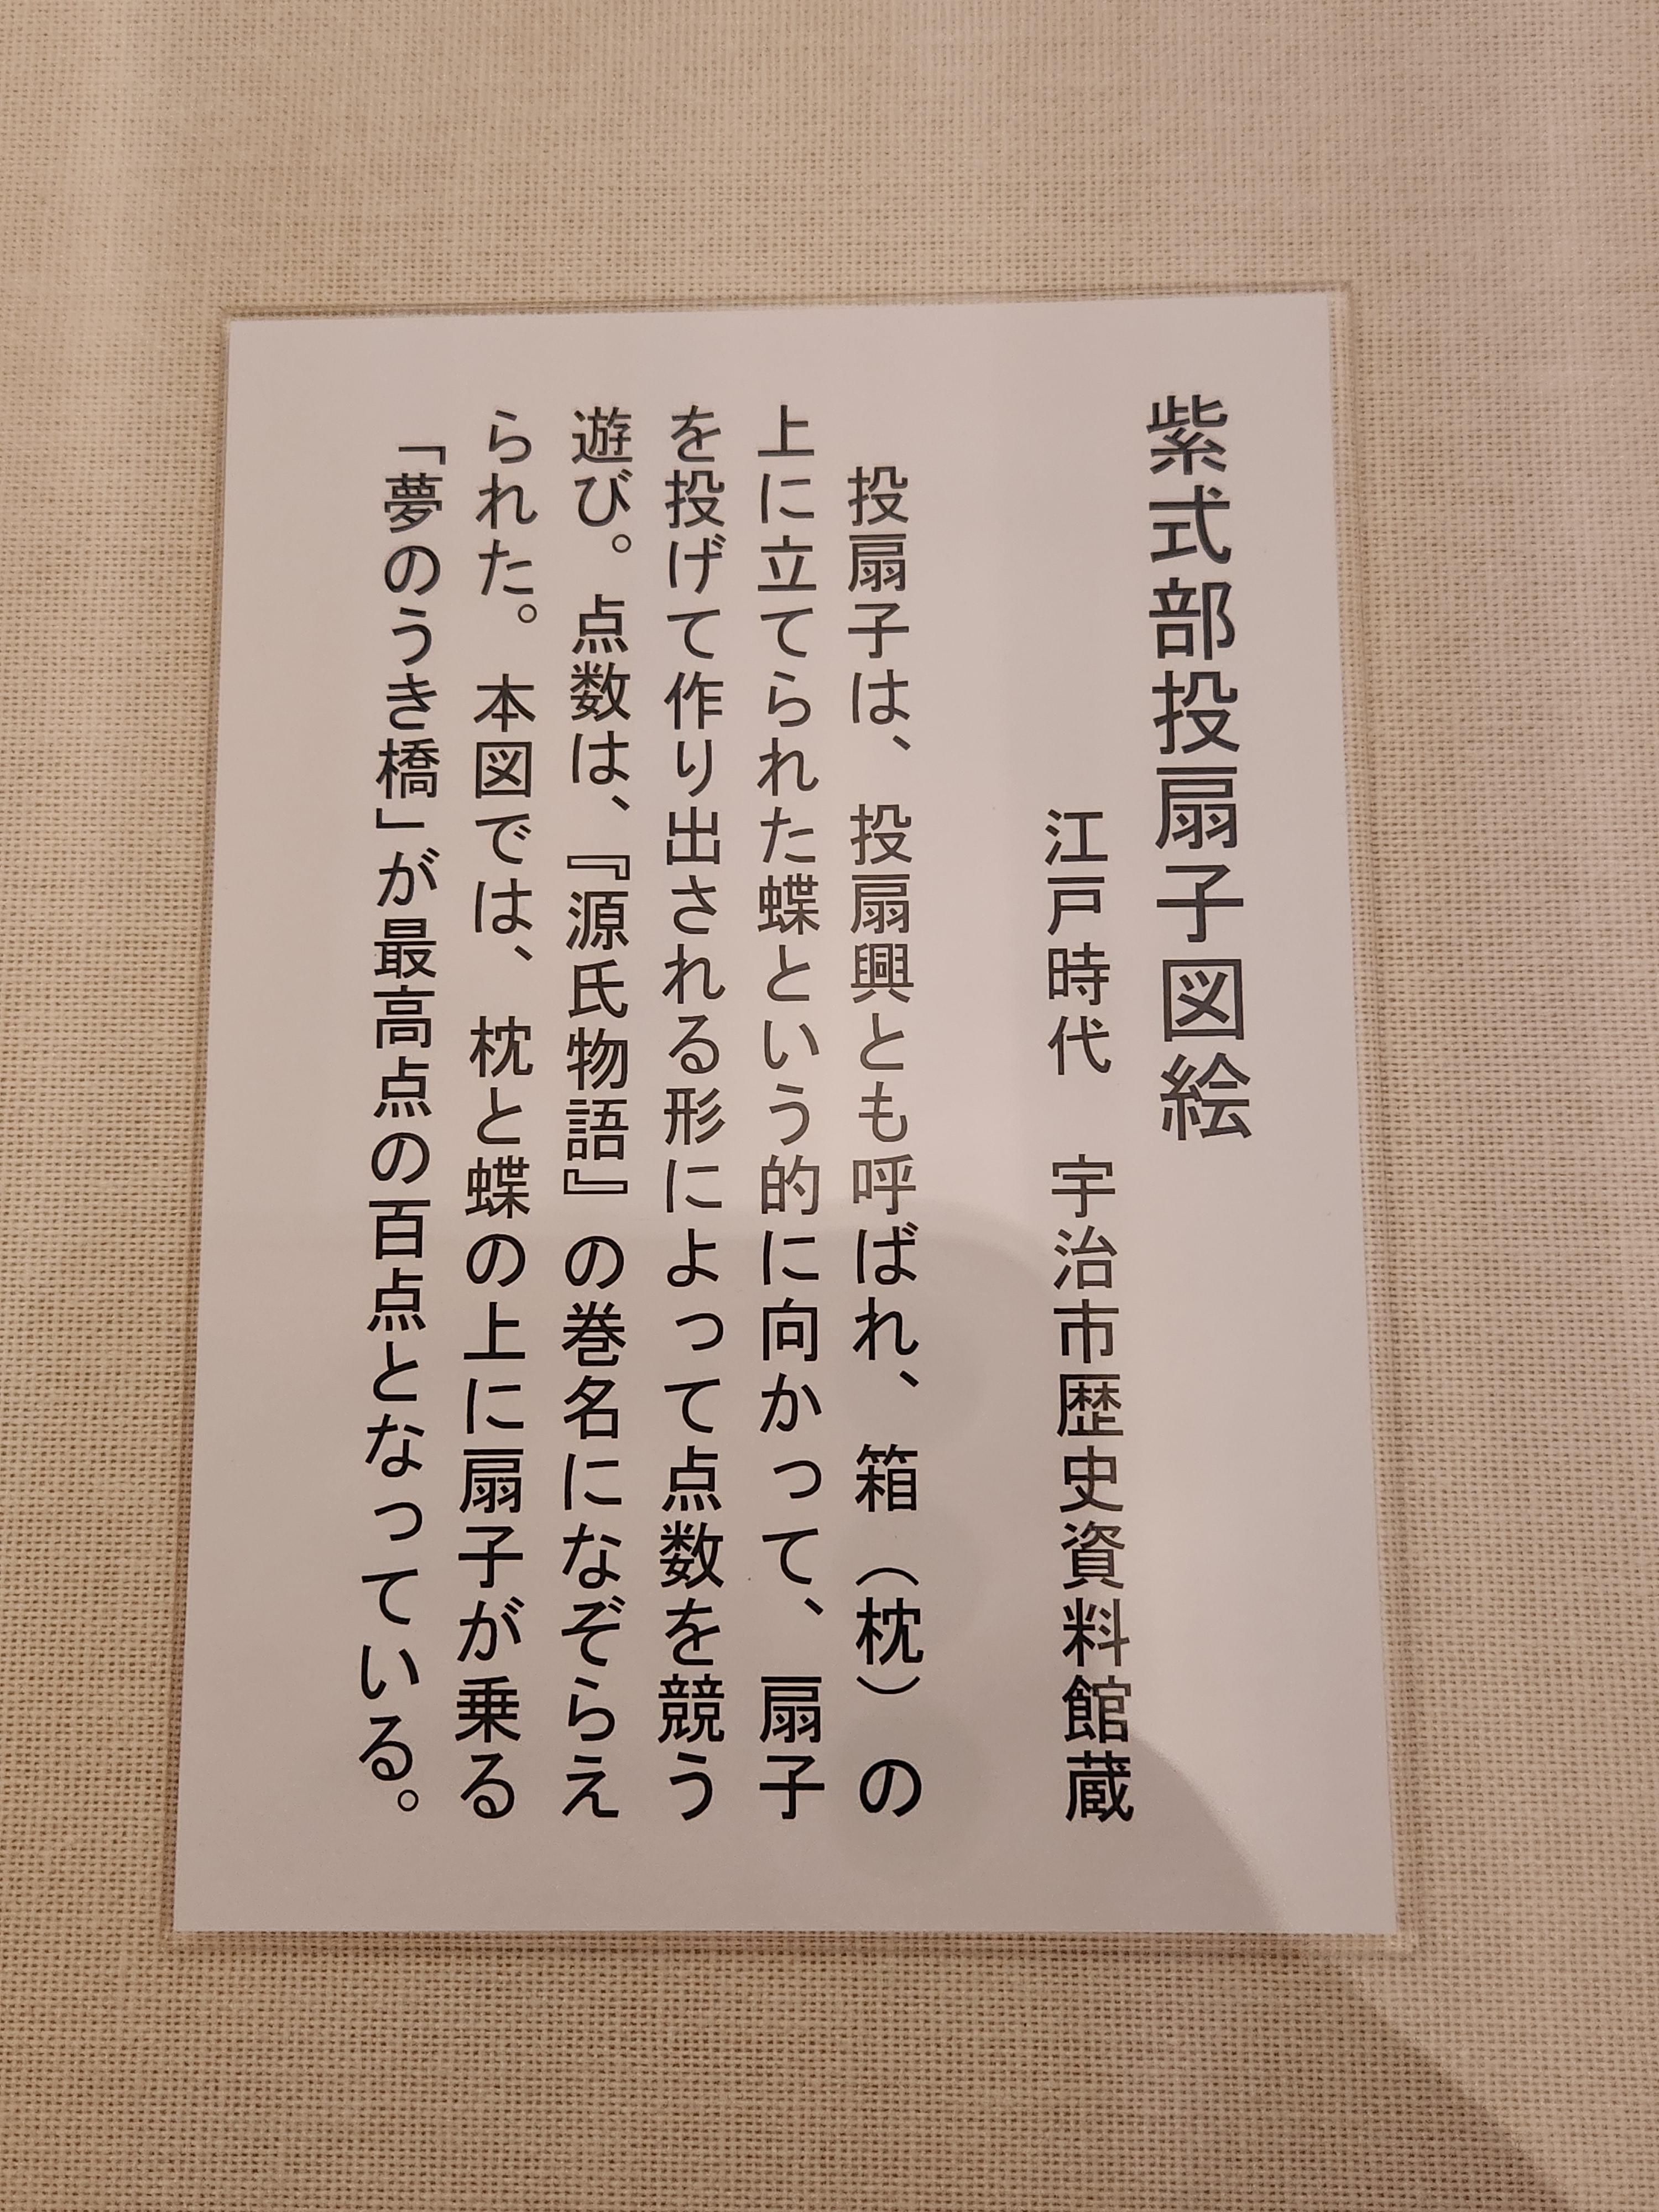 紫式部投扇子図絵
江戸時代　宇治市歴史資料館蔵
投扇子は、投扇興とも呼ばれ、箱（枕）の
上に立てられた蝶という的に向かって、扇子
を投げて作り出される形によって点数を競う
遊び。点数は、『源氏物語』の巻名になぞらえ
られた。本図では、枕と蝶の上に扇子が乗る
「夢のうき橋」が最高点の百点となっている。